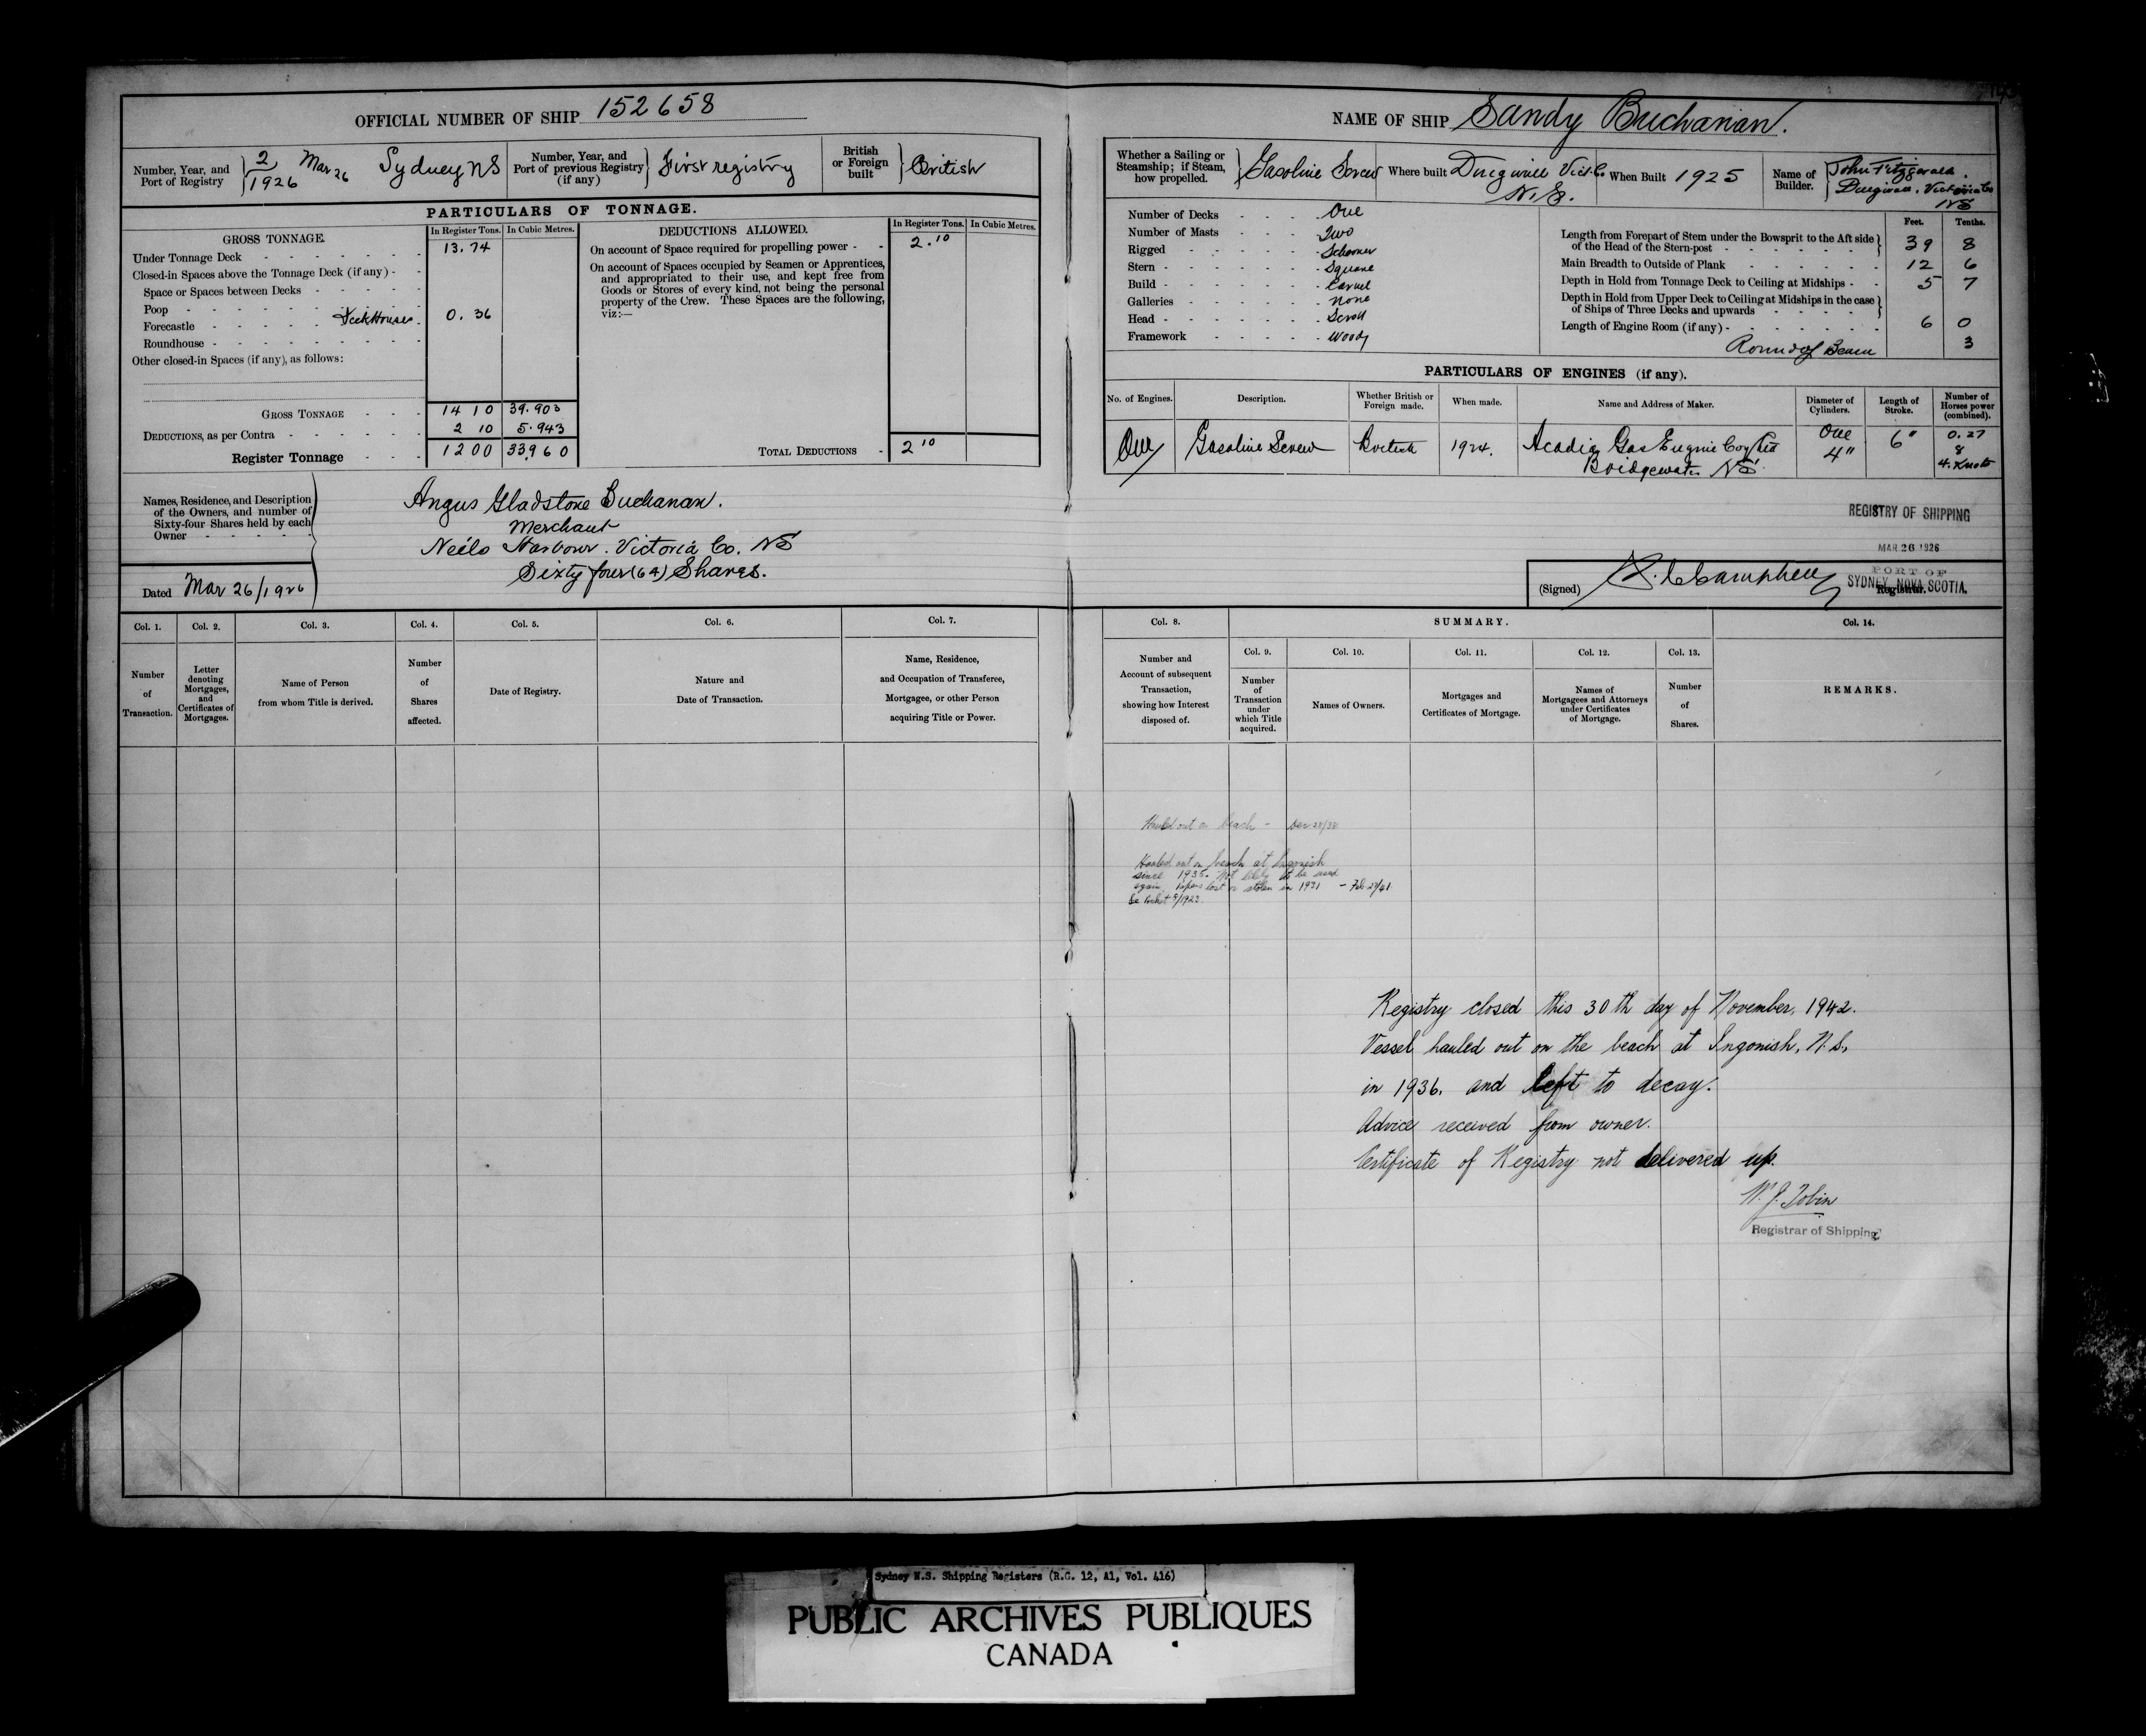 OFFICIAL NUMBER OF SHIP 152658
Number, Year, and Port of Registry 2/1926 Mar 26 Sydney NS
Number, Year, and Port of previous Registry (if any) First registry
British or Foreign built British
PARTICULARS OF TONNAGE.
GROSS TONNAGE. In Register Tons. In Cubic Metres.
Under Tonnage Deck 13.74
Closed-in Spaces above the Tonnage Deck (if any)
Space or Spaces between Decks
Poop
Forecastle Deck House 0.36
Roundhouse
Other closed-in Spaces (if any), as follows:
GROSS TONNAGE 14 10 39.903
DEDUCTIONS, as per Contra 2 10 5.943
Register Tonnage 12 00 33.960
DEDUCTIONS ALLOWED. In Register Tons. In Cubic Metres.
On account of Space required for propelling power 2.10
On account of Spaces occupied by Seamen or Apprentices,
and appropriated to their use, and kept free from
Goods or Stores of every kind, not being the personal
property of the Crew. These Spaces are the following,
viz:—
TOTAL DEDUCTIONS 2 10
Names, Residence, and Description
of the Owners, and number of
Sixty-four Shares held by each
Owner
Angus Gladstone Buchanan.
Merchant
Neils Harbour. Victoria Co. NS
Sixty four (64) Shares.
Dated Mar 26/1926
Col. 1. Number of Transaction.
Col. 2. Letter denoting Mortgages, and Certificates of Mortgages.
Col. 3. Name of Person from whom Title is derived.
Col. 4. Number of Shares affected.
Col. 5. Date of Registry.
Col. 6. Nature and Date of Transaction.
Col. 7. Name, Residence, and Occupation of Transferee, Mortgagee, or other Person acquiring Title or Power.
NAME OF SHIP Sandy Buchanan.
Whether a Sailing or Steamship; if Steam, how propelled. Gasoline Screw
Where built Vict. Co N.S.
When Built 1925
Name of Builder. John Fitzgerald. Victoria Co NS
Number of Decks One
Number of Masts Two
Rigged Schooner
Stern Square
Build Carvel
Galleries none
Head Scroll
Framework Wood
Feet. Tenths.
Length from Forepart of Stem under the Bowsprit to the Aft side of the Head of the Stern-post 39 8
Main Breadth to Outside of Plank 12 6
Depth in Hold from Tonnage Deck to Ceiling at Midships 5 7
Depth in Hold from Upper Deck to Ceiling at Midships in the case of Ships of Three Decks and upwards
Length of Engine Room (if any) 6 0
Round of Beam 3
PARTICULARS OF ENGINES (if any).
No. of Engines. Description. Whether British or Foreign made. When made. Name and Address of Maker. Diameter of Cylinders. Length of Stroke. Number of Horses power (combined).
One Gasoline Screw British 1924. Acadia Gas Engine Coy Ltd Bridgewater NS One 4" 6" 0.27 8 4. Knots
REGISTRY OF SHIPPING
MAR 26 1926
PORT OF
SYDNEY, NOVA SCOTIA.
(Signed) Campbell Registrar.
Col. 8. Number and Account of subsequent Transaction, showing how Interest disposed of.
SUMMARY.
Col. 9. Number of Transaction under which Title acquired.
Col. 10. Names of Owners.
Col. 11. Mortgages and Certificates of Mortgage.
Col. 12. Names of Mortgagees and Attorneys under Certificates of Mortgage.
Col. 13. Number of Shares.
Col. 14. REMARKS.
Hauled out on beach -
Hauled out on beach at Ingonish
since 1935. Not likely to be used
again. Papers lost or stolen in 1931 -
Registry closed this 30th day of November, 1942.
Vessel hauled out on the beach at Ingonish, N.S.,
in 1936. and left to decay.
Advice received from owner.
Certificate of Registry not delivered up.
W. J. Tobin
Registrar of Shipping
Sydney N.S. Shipping Registers (R.G. 12, A1, Vol. 416)
PUBLIC ARCHIVES PUBLIQUES
CANADA